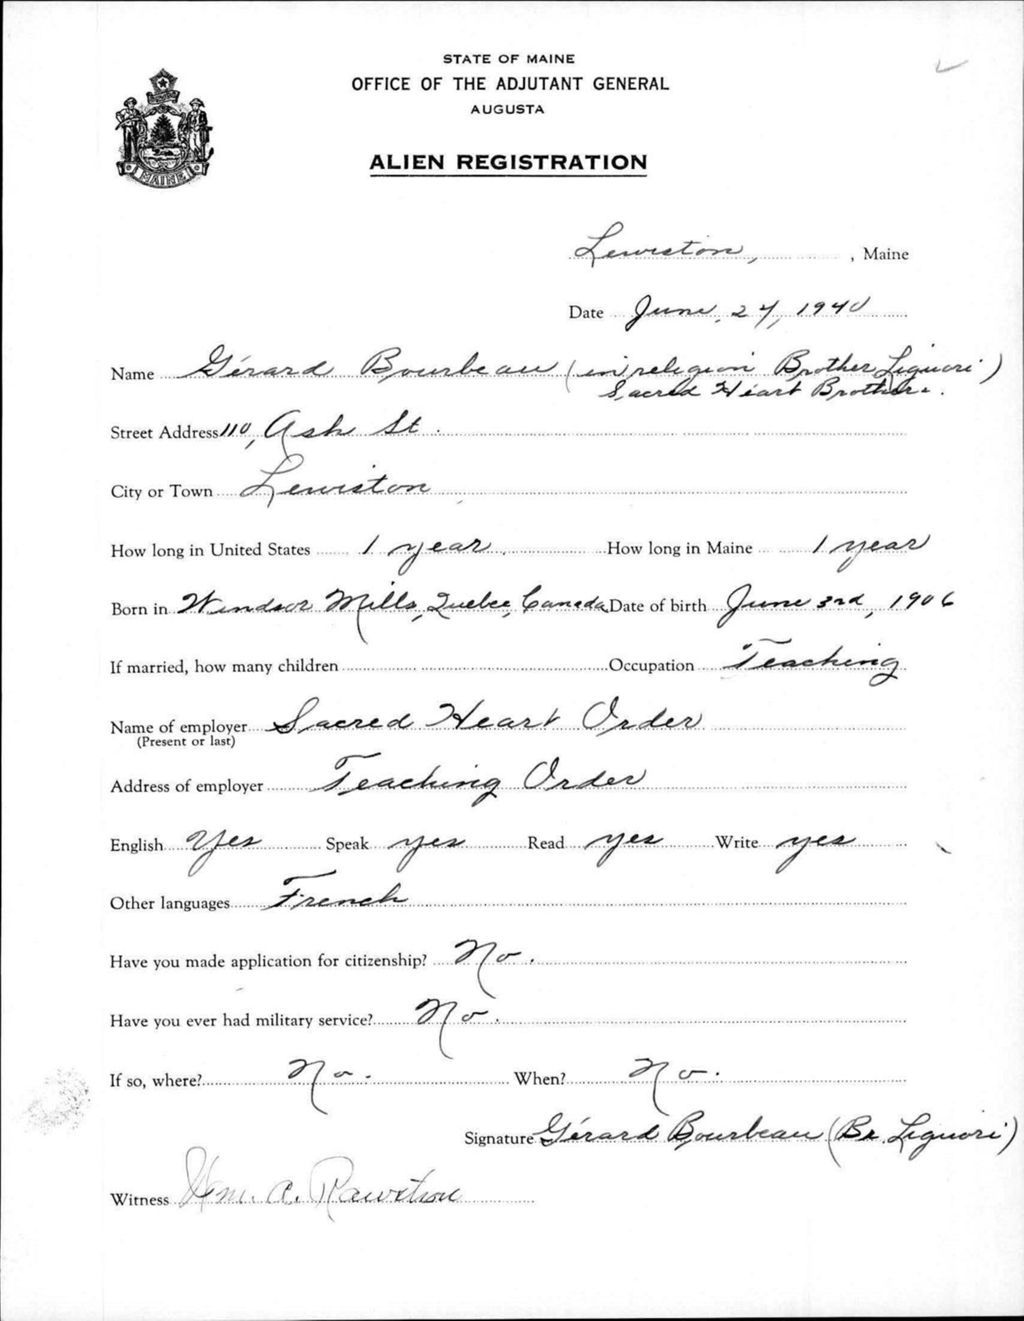 STATE OF MAINE
OFFICE OF THE ADJUTANT GENERAL
AUGUSTA
ALIEN REGISTRATION
MAINE
Lewiston, , Maine
Date June, 24, 1940
Name Gérard Bourbeau (in religion Brother Liguori)
Sacred Heart Brothers.
Street Address 110, Ash St.
City or Town Lewiston
How long in United States 1 year. How long in Maine 1 year
Born in Windsor Mills, Quebec, Canada, Date of birth June 3rd, 1906
If married, how many children Occupation Teaching
Name of employer Sacred Heart Order
(Present or last)
Address of employer Teaching Order
English Yes Speak yes Read yes Write yes
Other languages French
Have you made application for citizenship? No.
Have you ever had military service? No.
If so, where? No. When? No.
Signature Gérard Bourbeau (Br. Liguori)
Witness Wm. A.